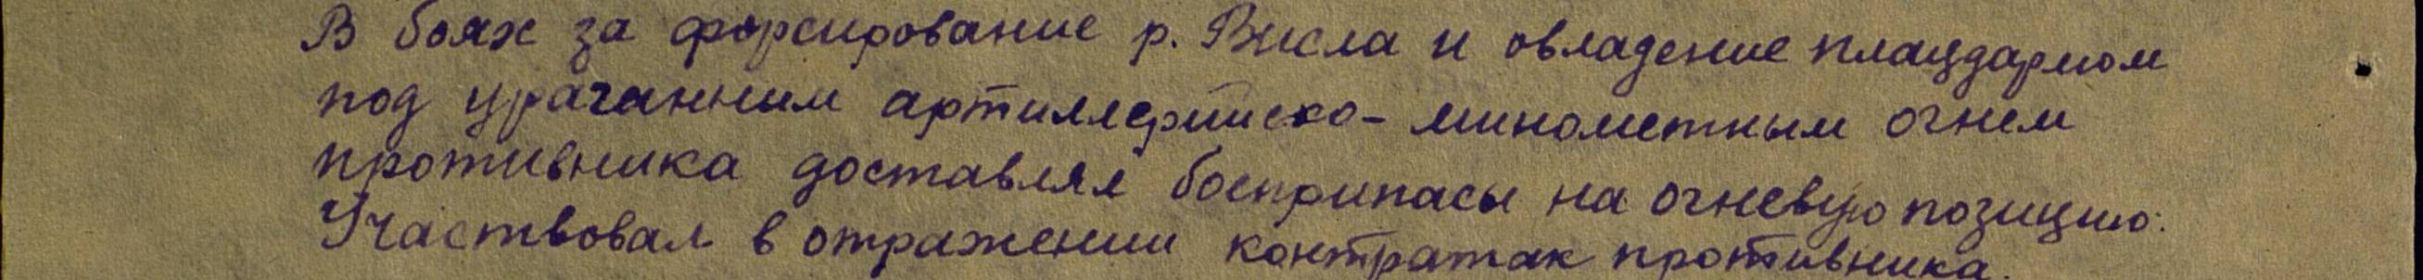 В боях за форсирование р. Висла и овладение плацдармом
под ураганним артиллерийско-минометным огнем
противника доставлял боеприпасы на огневую позицию.
Участвовал в отражении контратак противника.